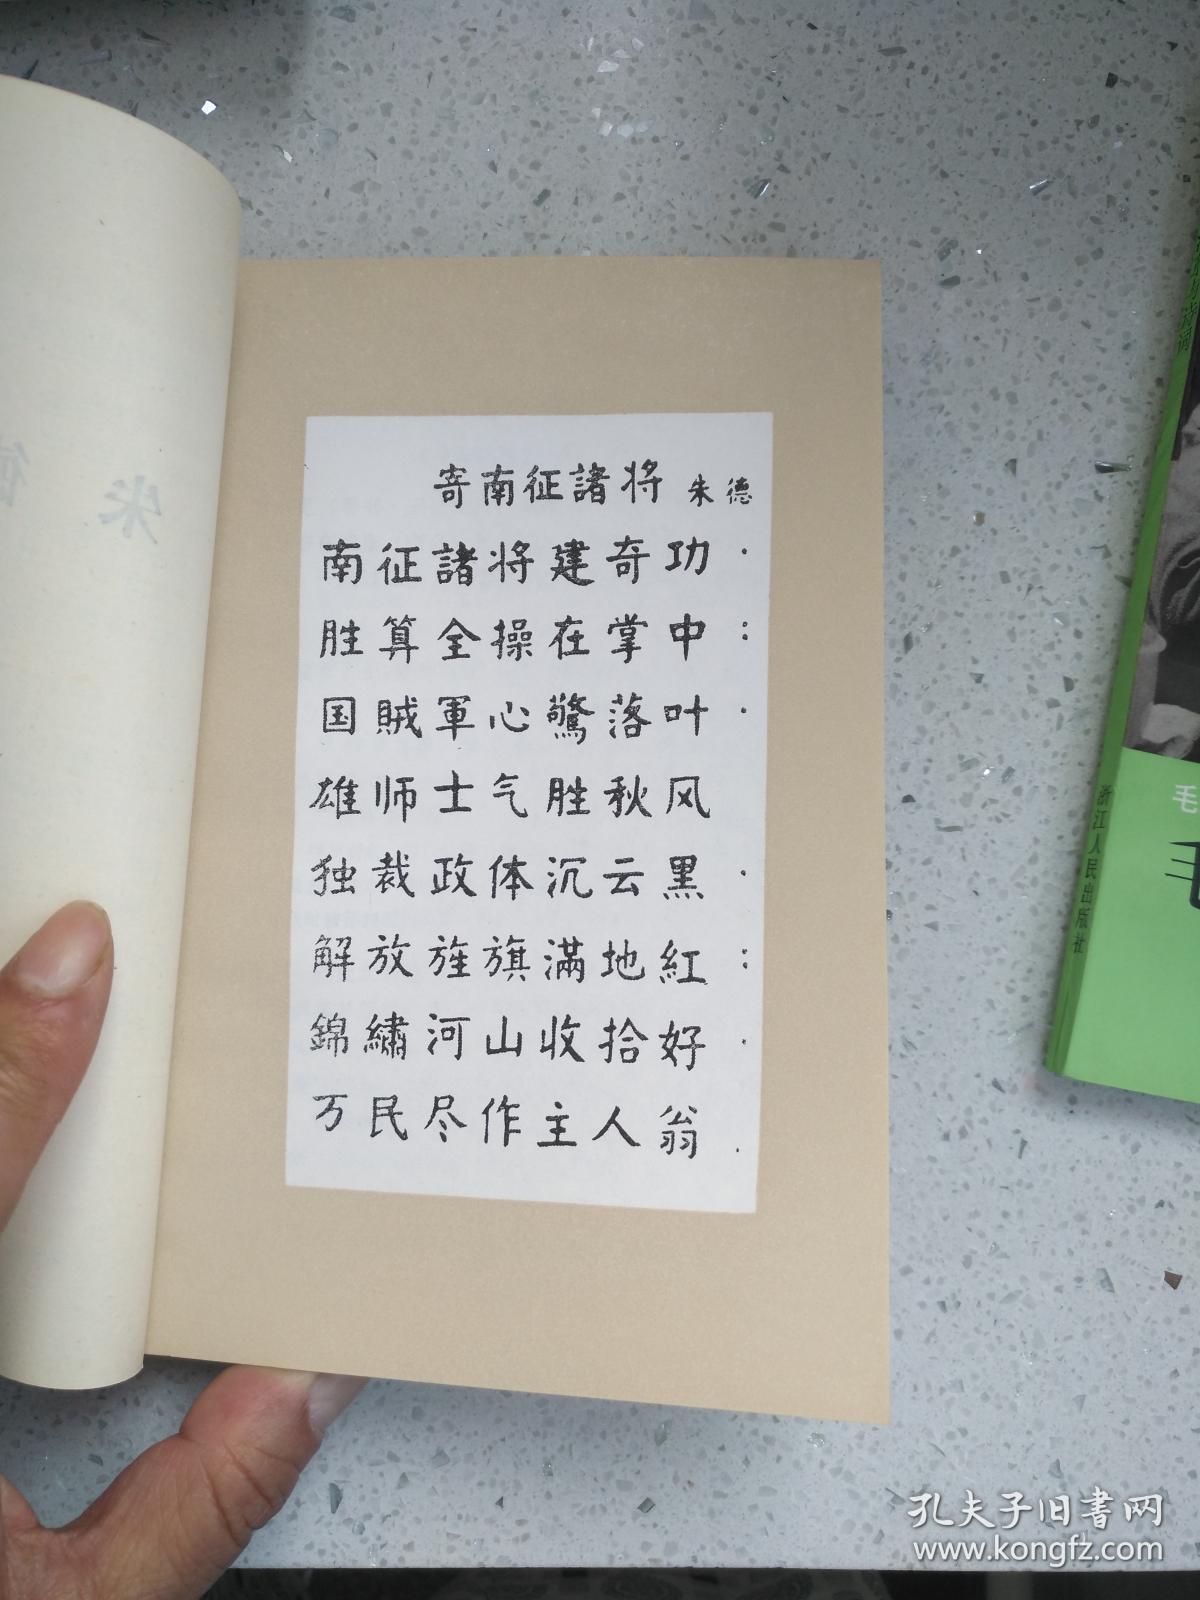 寄南征諸将 朱德
南征諸将建奇功.
胜算全操在掌中:
国賊軍心驚落叶.
雄师士气胜秋风
独裁政体沉云黑.
解放旌旗滿地紅:
錦繡河山收拾好.
万民尽作主人翁.
朱
浙江人民出版社
毛
孔夫子旧書网
www.kongfz.com